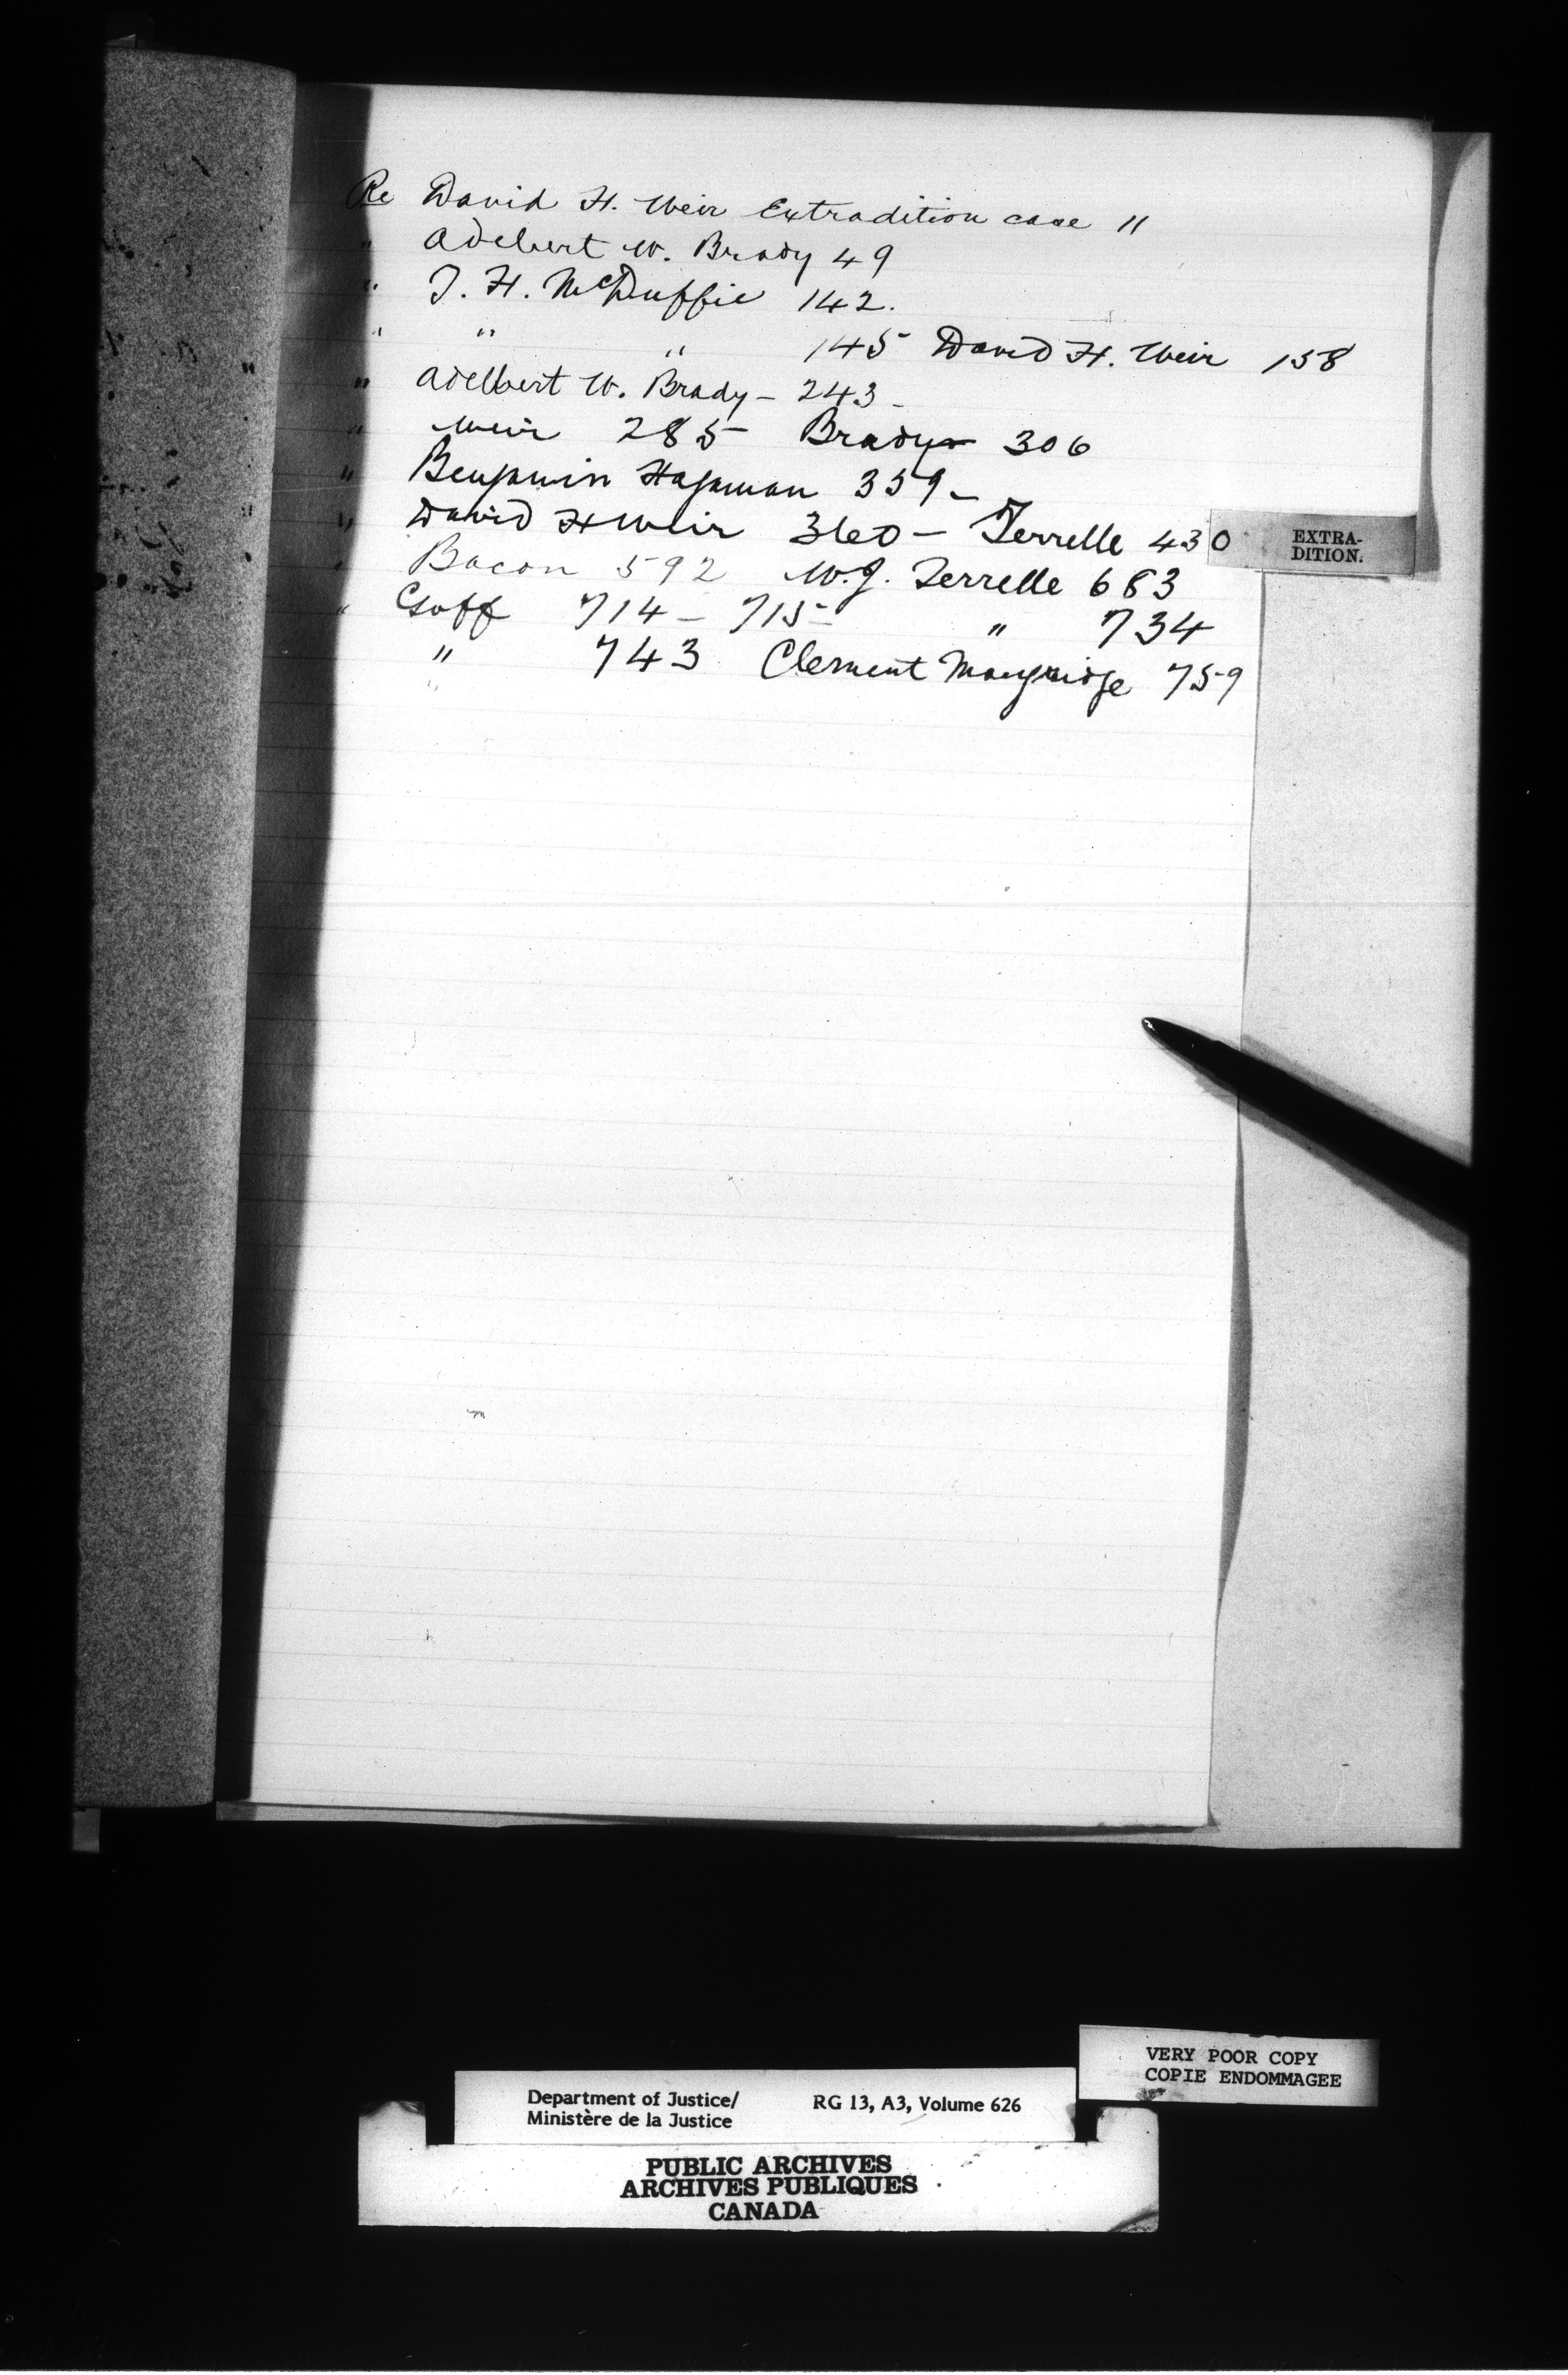 Re David H. Weir Extradition case 11
" Adebert W. Brady 49
" T. H. McDuffie 142.
" " " 145 David H. Weir 158
" Adelbert W. Brady - 243 -
" Weir 285 Brady 306
" Benjamin Hagaman 359 -
" David H Weir 360 - Terrelle 430
" Bacon 592 W.J. Terrelle 683
" Goff 714 - 715 " 734
" 743 Clement 759
EXTRA-
DITION.
VERY POOR COPY
COPIE ENDOMMAGEE
Department of Justice/ RG 13, A3, Volume 626
Ministère de la Justice
PUBLIC ARCHIVES
ARCHIVES PUBLIQUES
CANADA